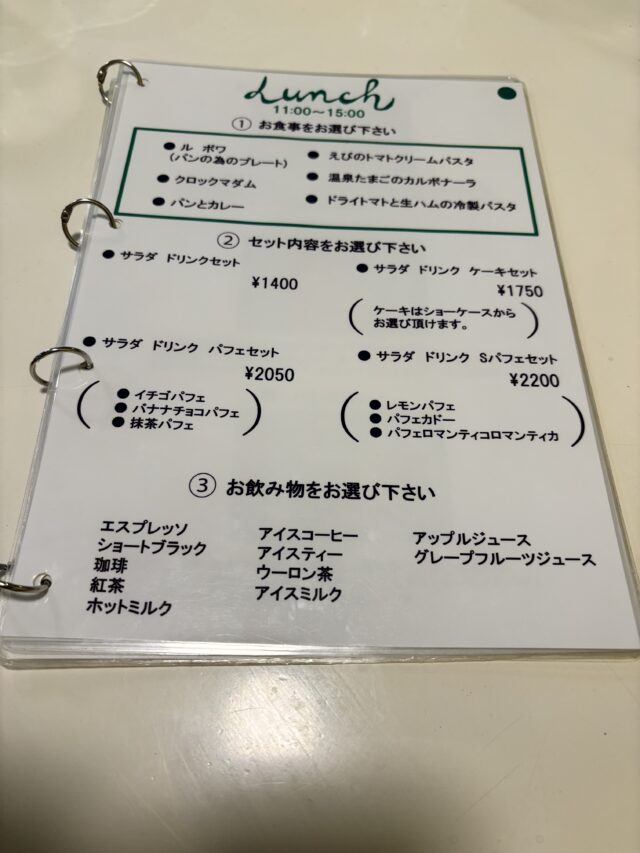 Lunch
11:00～15:00
① お食事をお選び下さい
● ル ポワ
(パンの為のプレート)
● クロックマダム
● パンとカレー
● えびのトマトクリームパスタ
● 温泉たまごのカルボナーラ
● ドライトマトと生ハムの冷製パスタ
② セット内容をお選び下さい
● サラダ ドリンクセット
¥1400
● サラダ ドリンク ケーキセット
¥1750
(ケーキはショーケースから
お選び頂けます。)
● サラダ ドリンク パフェセット
¥2050
(● イチゴパフェ
● バナナチョコパフェ
● 抹茶パフェ)
● サラダ ドリンク Sパフェセット
¥2200
(● レモンパフェ
● パフェカドー
● パフェロマンティコロマンティカ)
③ お飲み物をお選び下さい
エスプレッソ
ショートブラック
珈琲
紅茶
ホットミルク
アイスコーヒー
アイスティー
ウーロン茶
アイスミルク
アップルジュース
グレープフルーツジュース